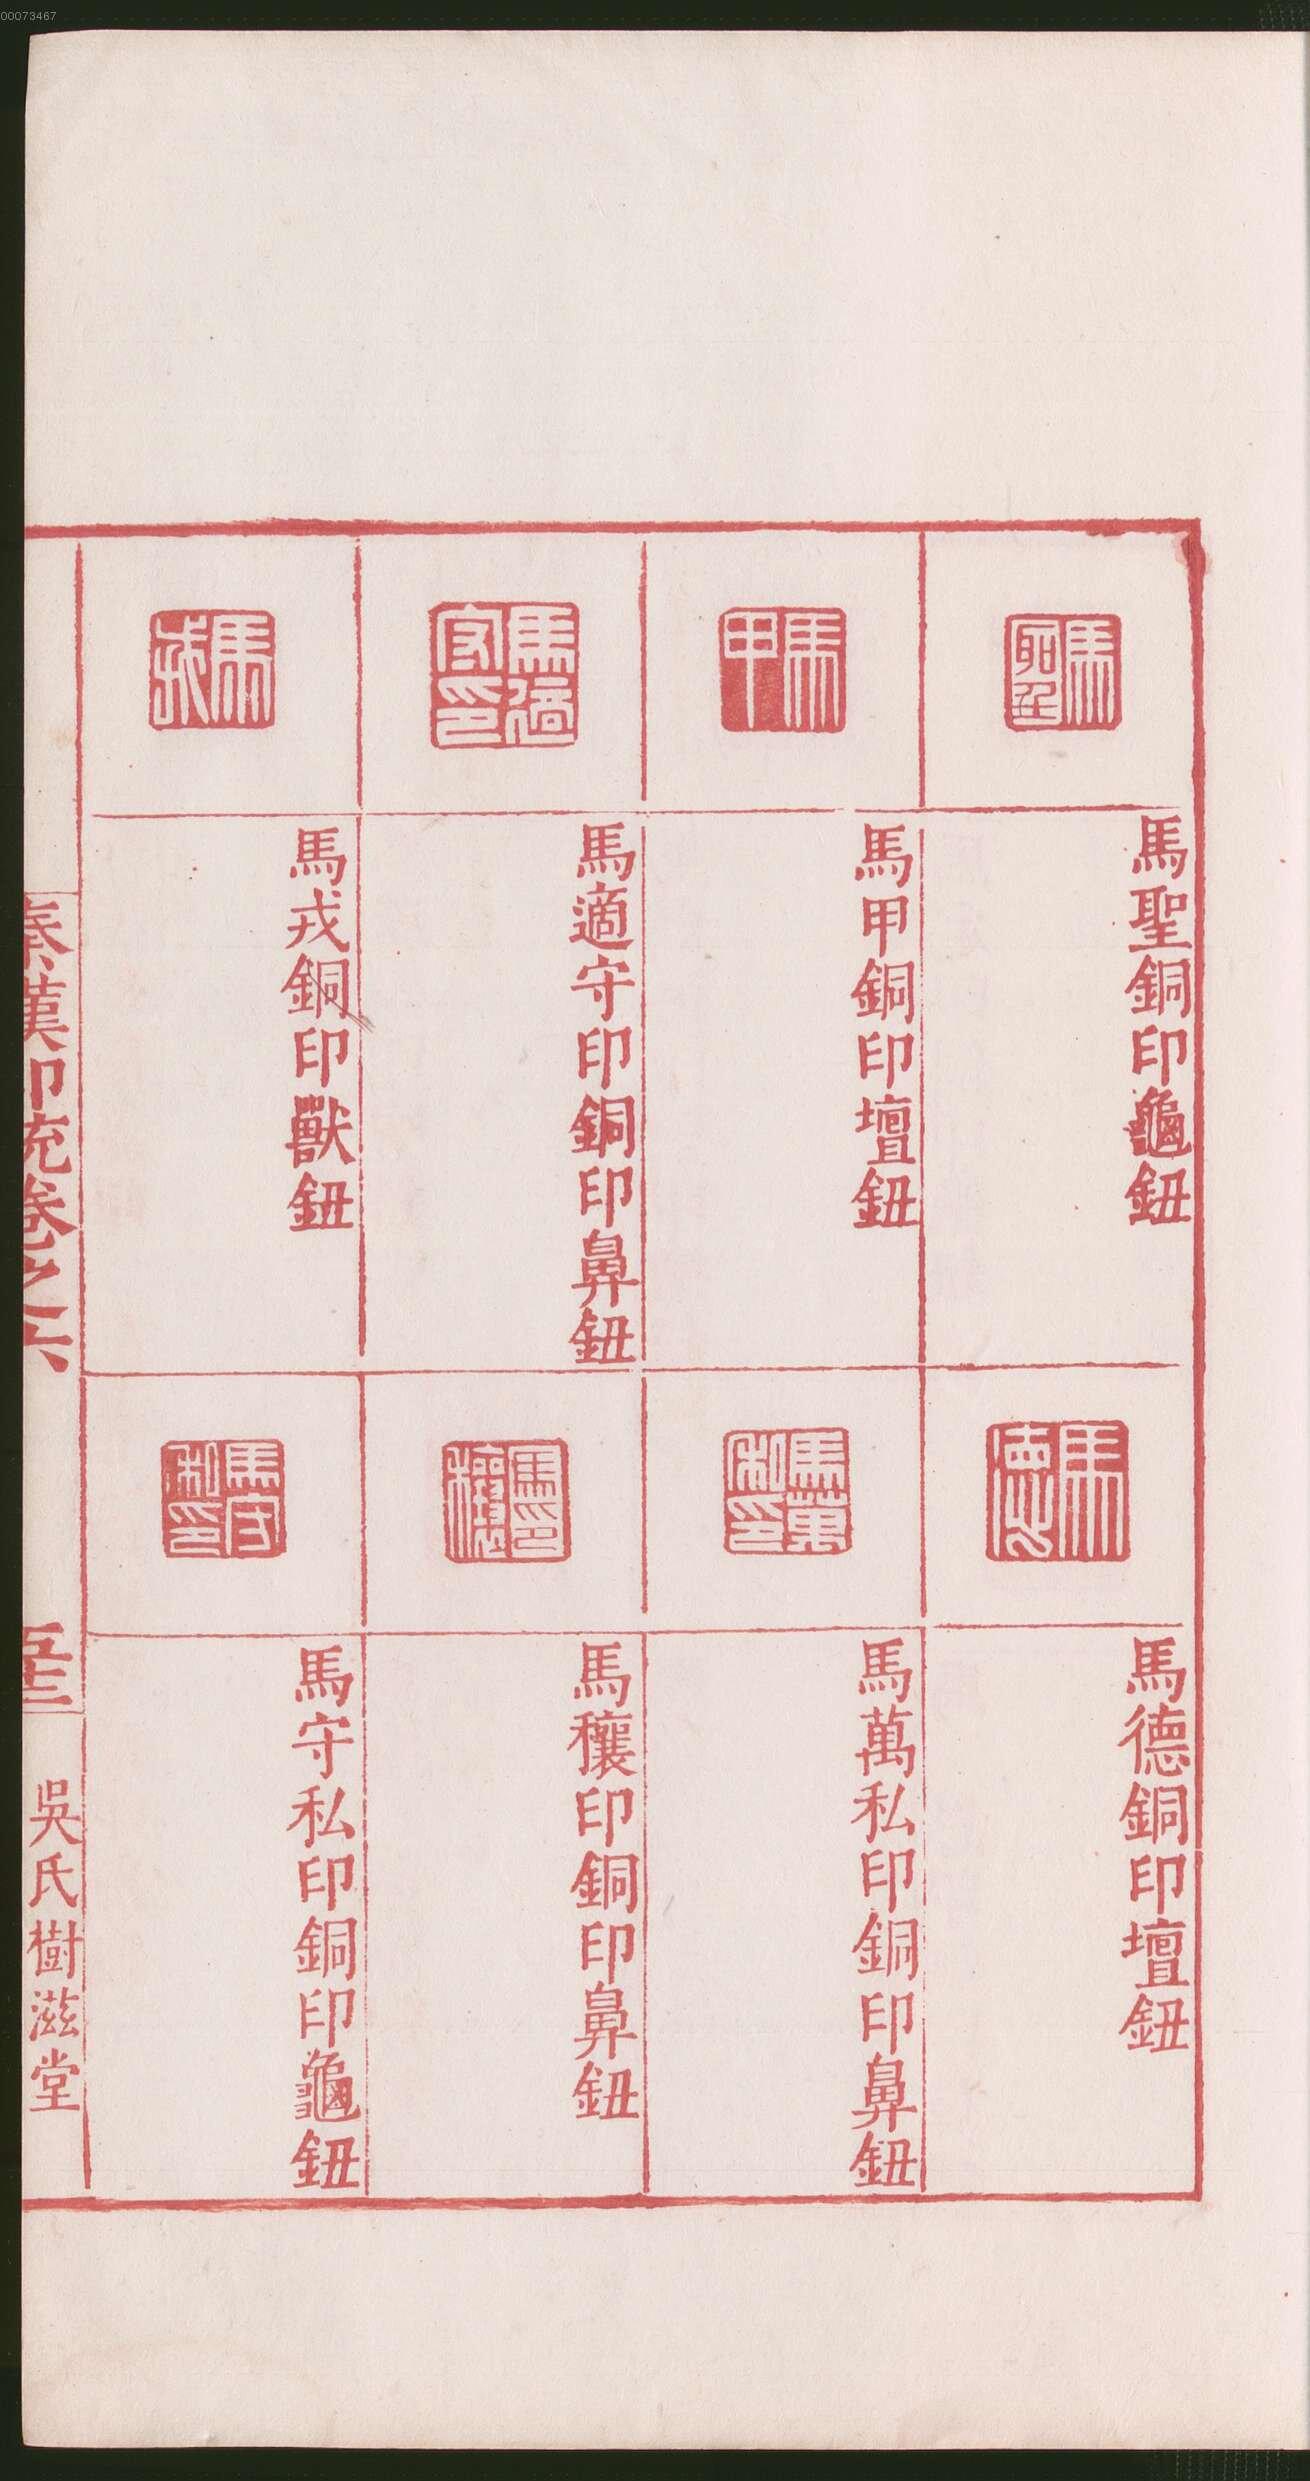 00073467
馬聖
馬聖銅印龜鈕
馬甲
馬甲銅印壇鈕
馬適守印
馬適守印銅印鼻鈕
馬戎
馬戎銅印獸鈕
馬德
馬德銅印壇鈕
馬萬私印
馬萬私印銅印鼻鈕
馬印穰
馬穰印銅印鼻鈕
馬守私印
馬守私印銅印龜鈕
秦漢印統卷之六
五十二
吳氏樹滋堂